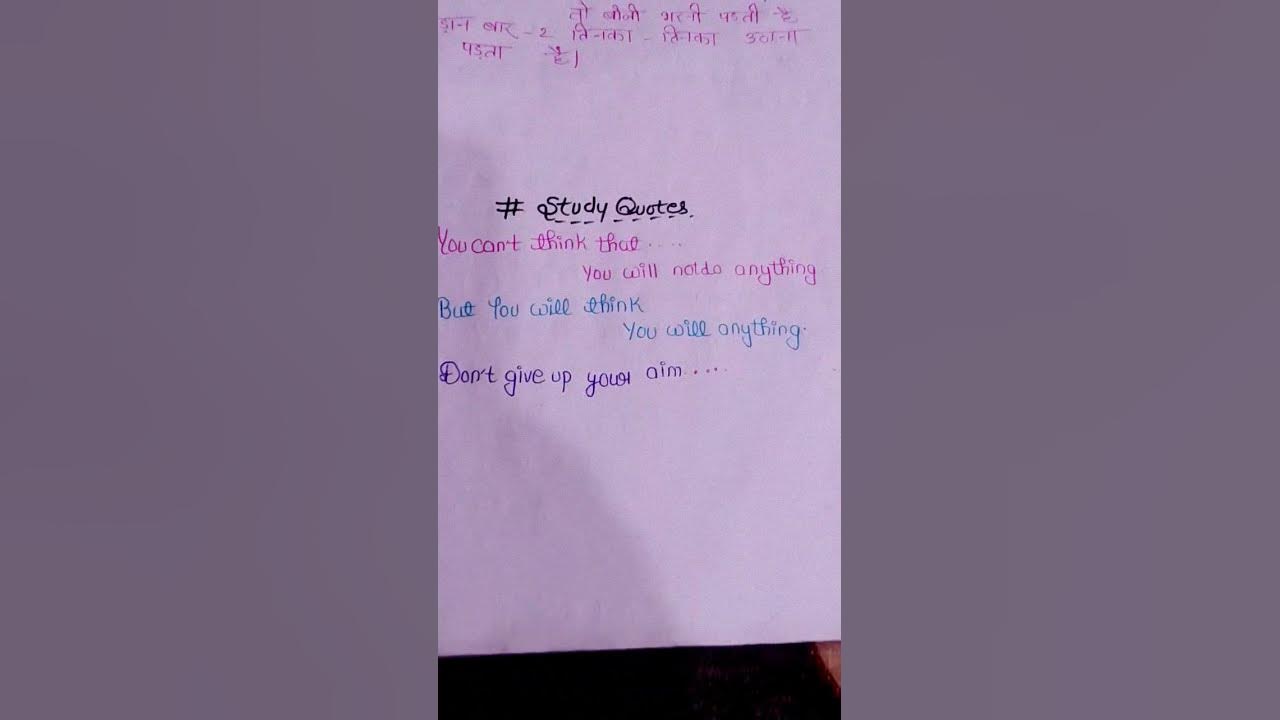 तो बोनी भरनी पड़ती है
बार -2 तिनका - तिनका उठाना
पड़ता है।
# Study Quotes.
You can't think that ....
You will not do anything
But You will think
You will anything.
Don't give up your aim ....